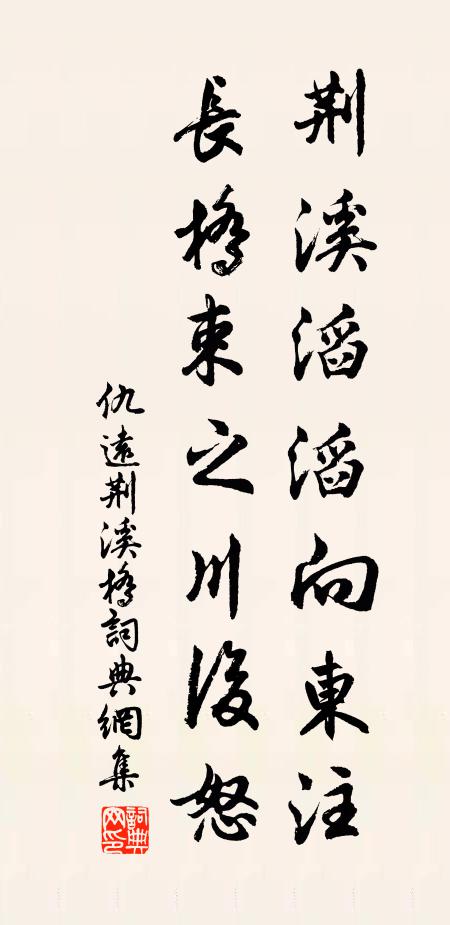 荆溪滔滔向東注
長橋束之川後怒
仇遠荆溪橋詞典網集
詞典網印